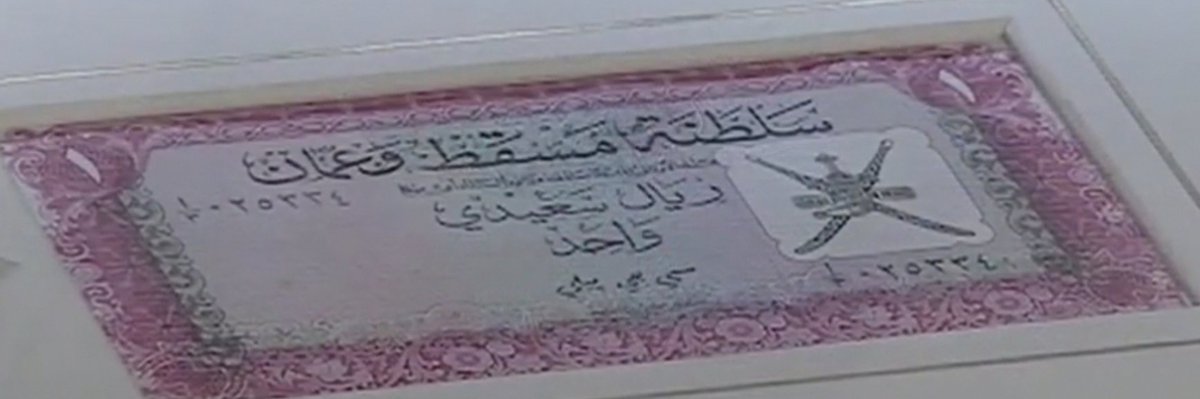 ١
١
سلطنة مسقط وعمان
ريال سعيدي
واحد
١/أ ٠٢٥٣٣٤
١/أ ٠٢٥٣٣٤